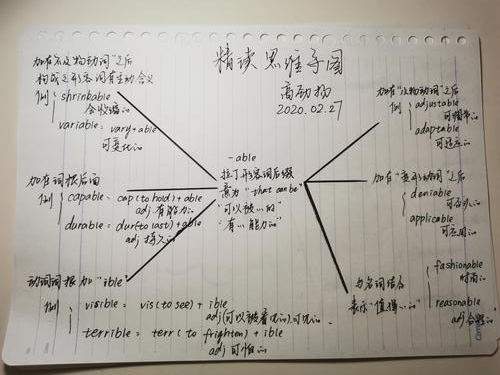 精读思维导图
高劲扬
2020.02.27
加在"不及物动词"之后
构成之形容词有主动含义
例 shrinkable
会收缩的
variable = vary+able
可变化的
加在词根后面
例 capable = cap(to hold)+able
adj.有能力的
durable = dur(to last)+able
adj 持久的
动词词根加"ible"
例 visible = vis(to see) + ible
adj(可以被看见的)可见的
terrible = terr(to frighten) + ible
adj 可怕的
-able
拉丁形容词后缀
意为"that can be"
"可以被…的"
"有…能力的"
加在"及物动词"之后
例 adjustable
可调节的
adaptable
可适应的
加在"变形动词"之后
deniable
可否认的
applicable
可应用的
与名词结合
表示"值得…的"
fashionable
时尚的
reasonable
adj 合理的